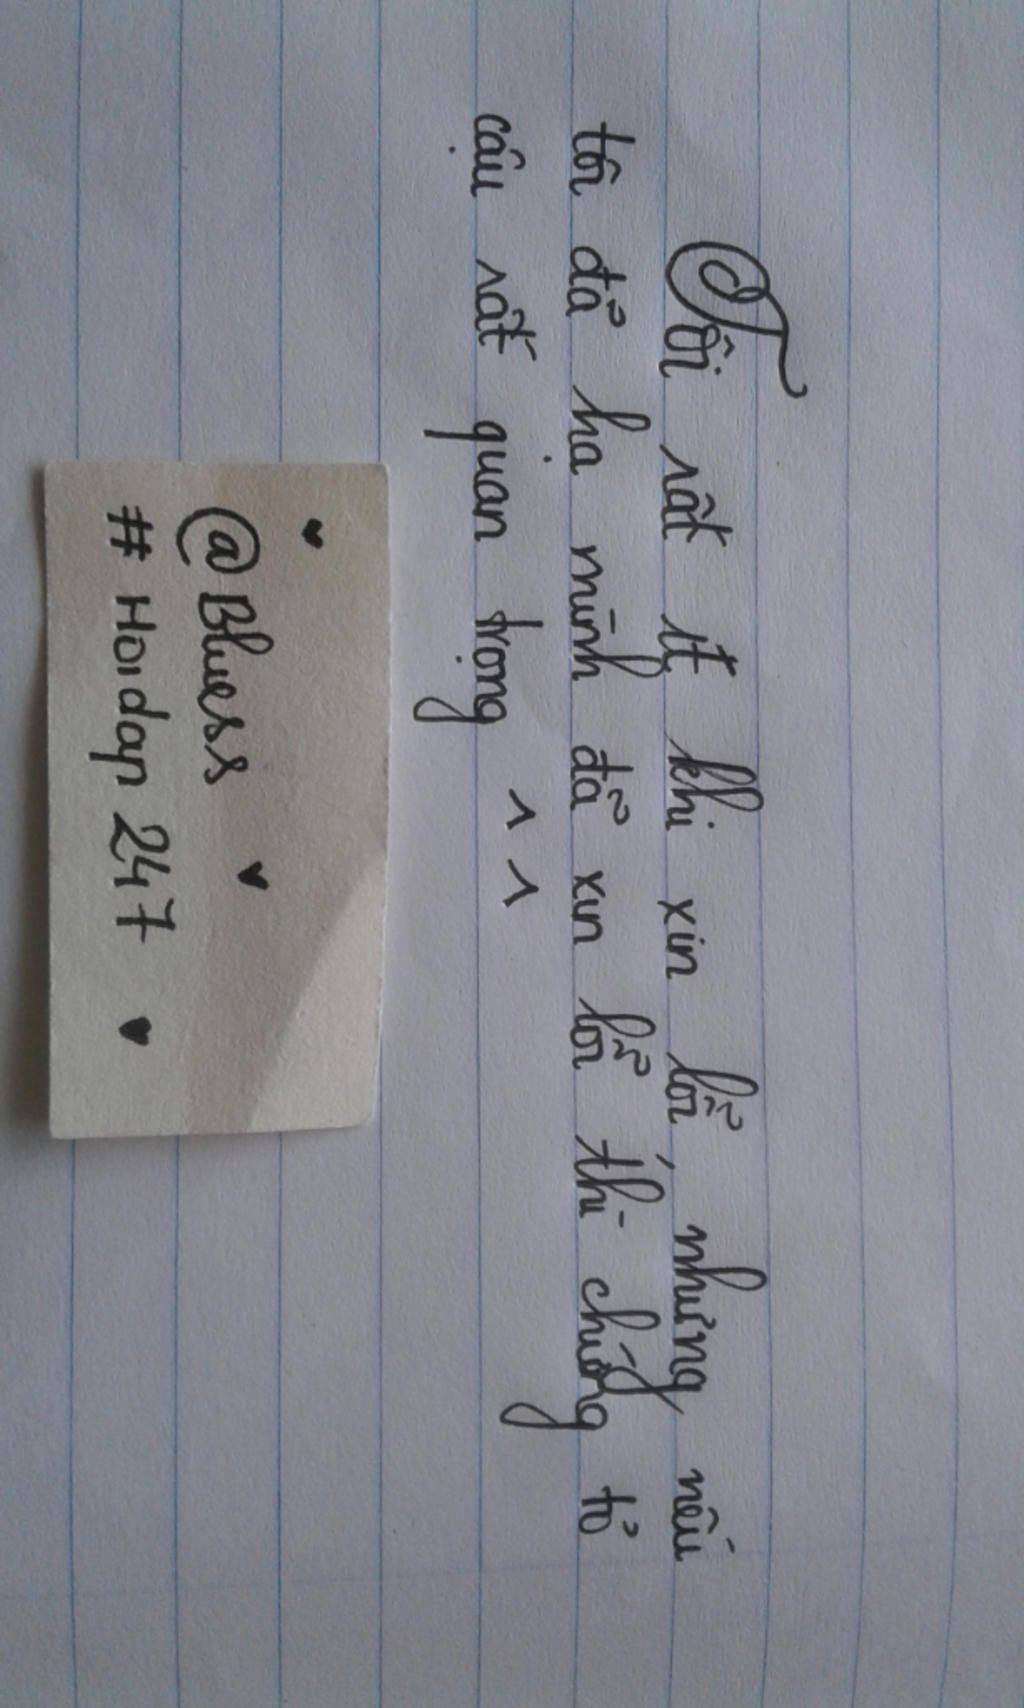 Tôi rất ít khi xin lỗi, nhưng nếu
tôi đã hạ mình để xin lỗi thì chứng tỏ
cậu rất quan trọng ^ ^
@Bluess
# Hoidap 247